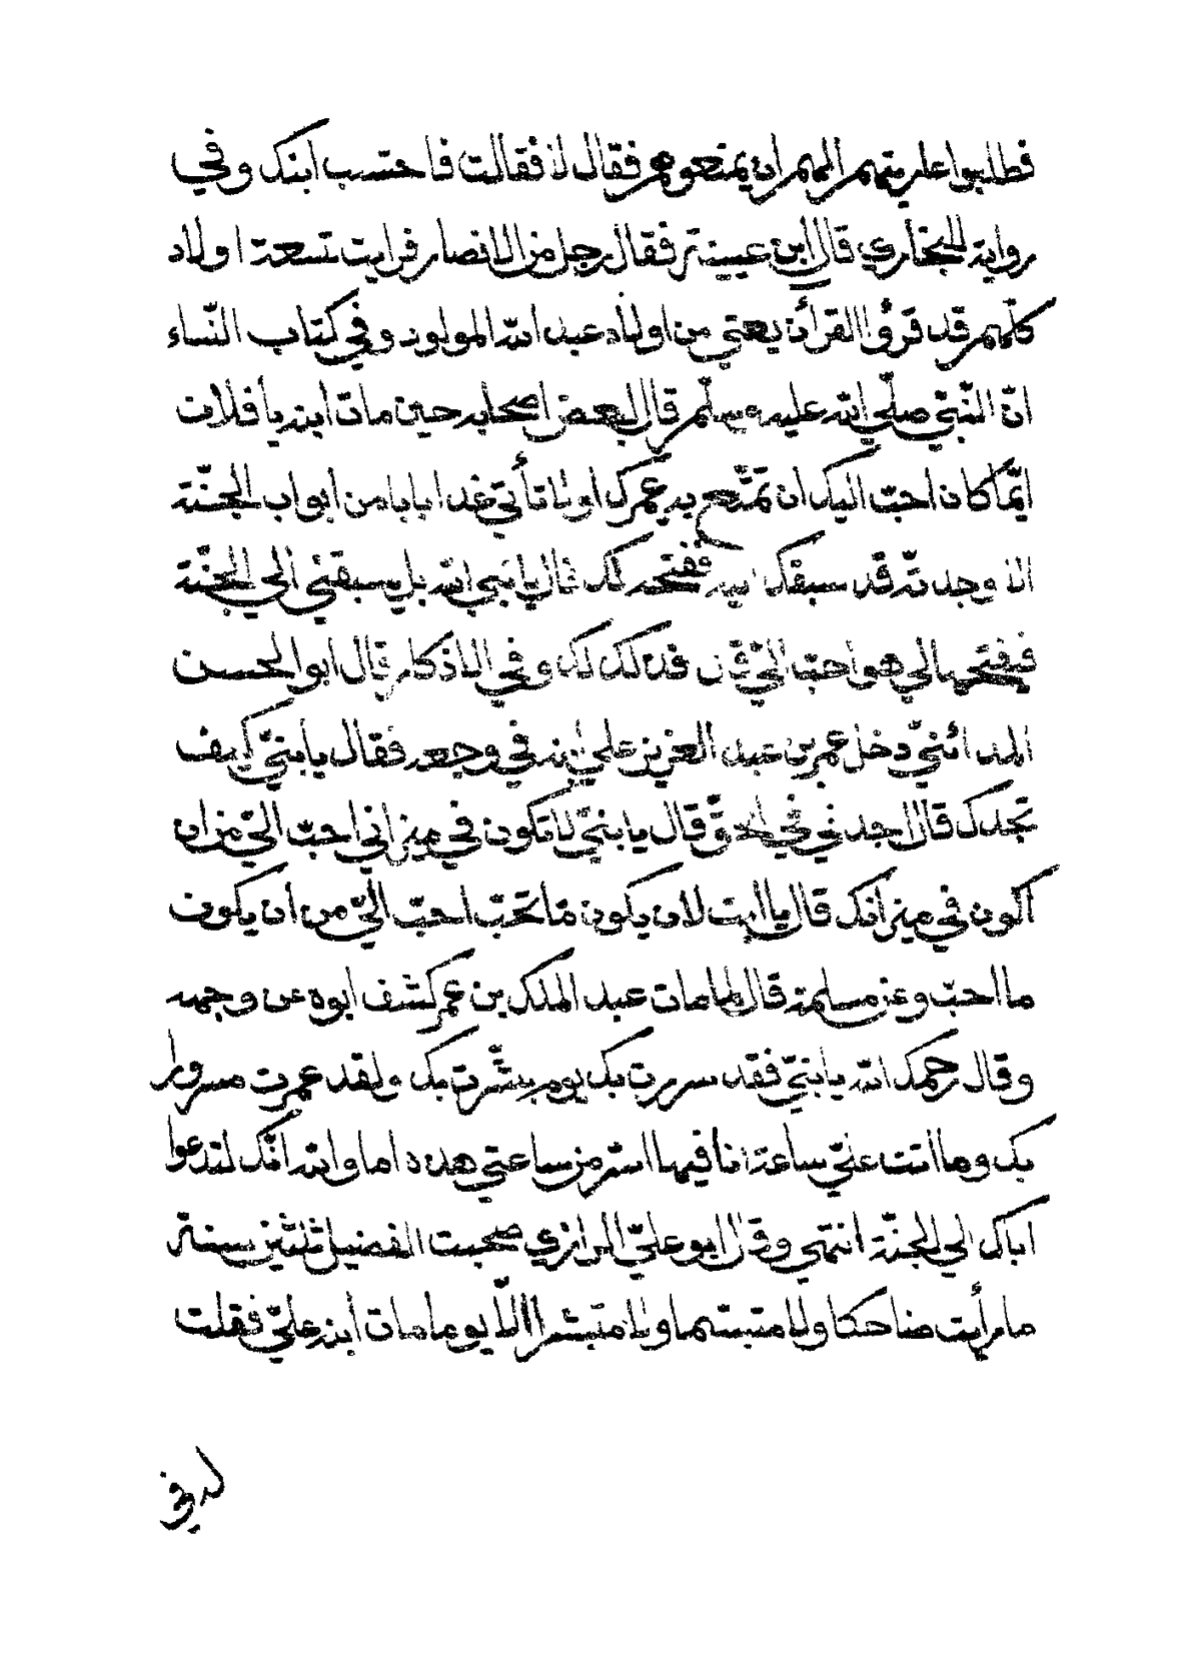 فطلبوا عاريتهم الهم ان يمنعوهم فقال لا فقالت فاحتسب ابنك وفي
رواية للبخاري قال ابن عيينة فقال رجل من الانصار فرايت تسعة اولاد
كلّهم قد قرؤا القرأن يعني من اولاد عبد الله المولود وفي كتاب النّساء
انّ النّبيّ صلّي الله عليه وسلّم قال لبعض اصحابه حين مات ابنه يأفلان
ايّما كان احبّ اليك ان تمتّع به عمرك اولا تأتي غدا بابا من ابواب الجنّة
الا وجدته قد سبقك اليه ففتحه لك قال يا نبي الله بل يسبقني الي الجنّة
فيفتحها لي هو احبّ اليّ قال فذلك لك وفي الاذكار قال ابو الحسن
المدائنيّ دخل عمر بن عبد العزيز علي ابنه في وجعه فقال يأبنيّ كيف
تجدك قال اجدني في الحقّ قال يا بنيّ لاتكون في ميزاني احبّ اليّ من ان
اكون في ميزانك قال يا ابت لان يكون مّا تحبّ احبّ اليّ من ان يكون
ما احبّ وعن مسلمة قال لما مات عبد الملك بن عمر كشف ابوه عن وجهه
وقال رحمك الله يا بنيّ فقد سررت بك يوم بشّرت بك ولقد عمرت مسرورا
بك وما اتت عليّ ساعة انا فيها اسّر من ساعتي هذه اما والله انّك لتدعوا
اباك الي الجنّة انتهي وقال ابو عليّ الرازي صحبت الفضيل ثلثين سنة
مارأيت ضاحكا ولا متبسّما ولا متبشرا الّا يوما مات أبنه عليّ فقلت
له في